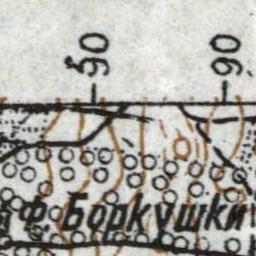 90 90
ф. Боркушки